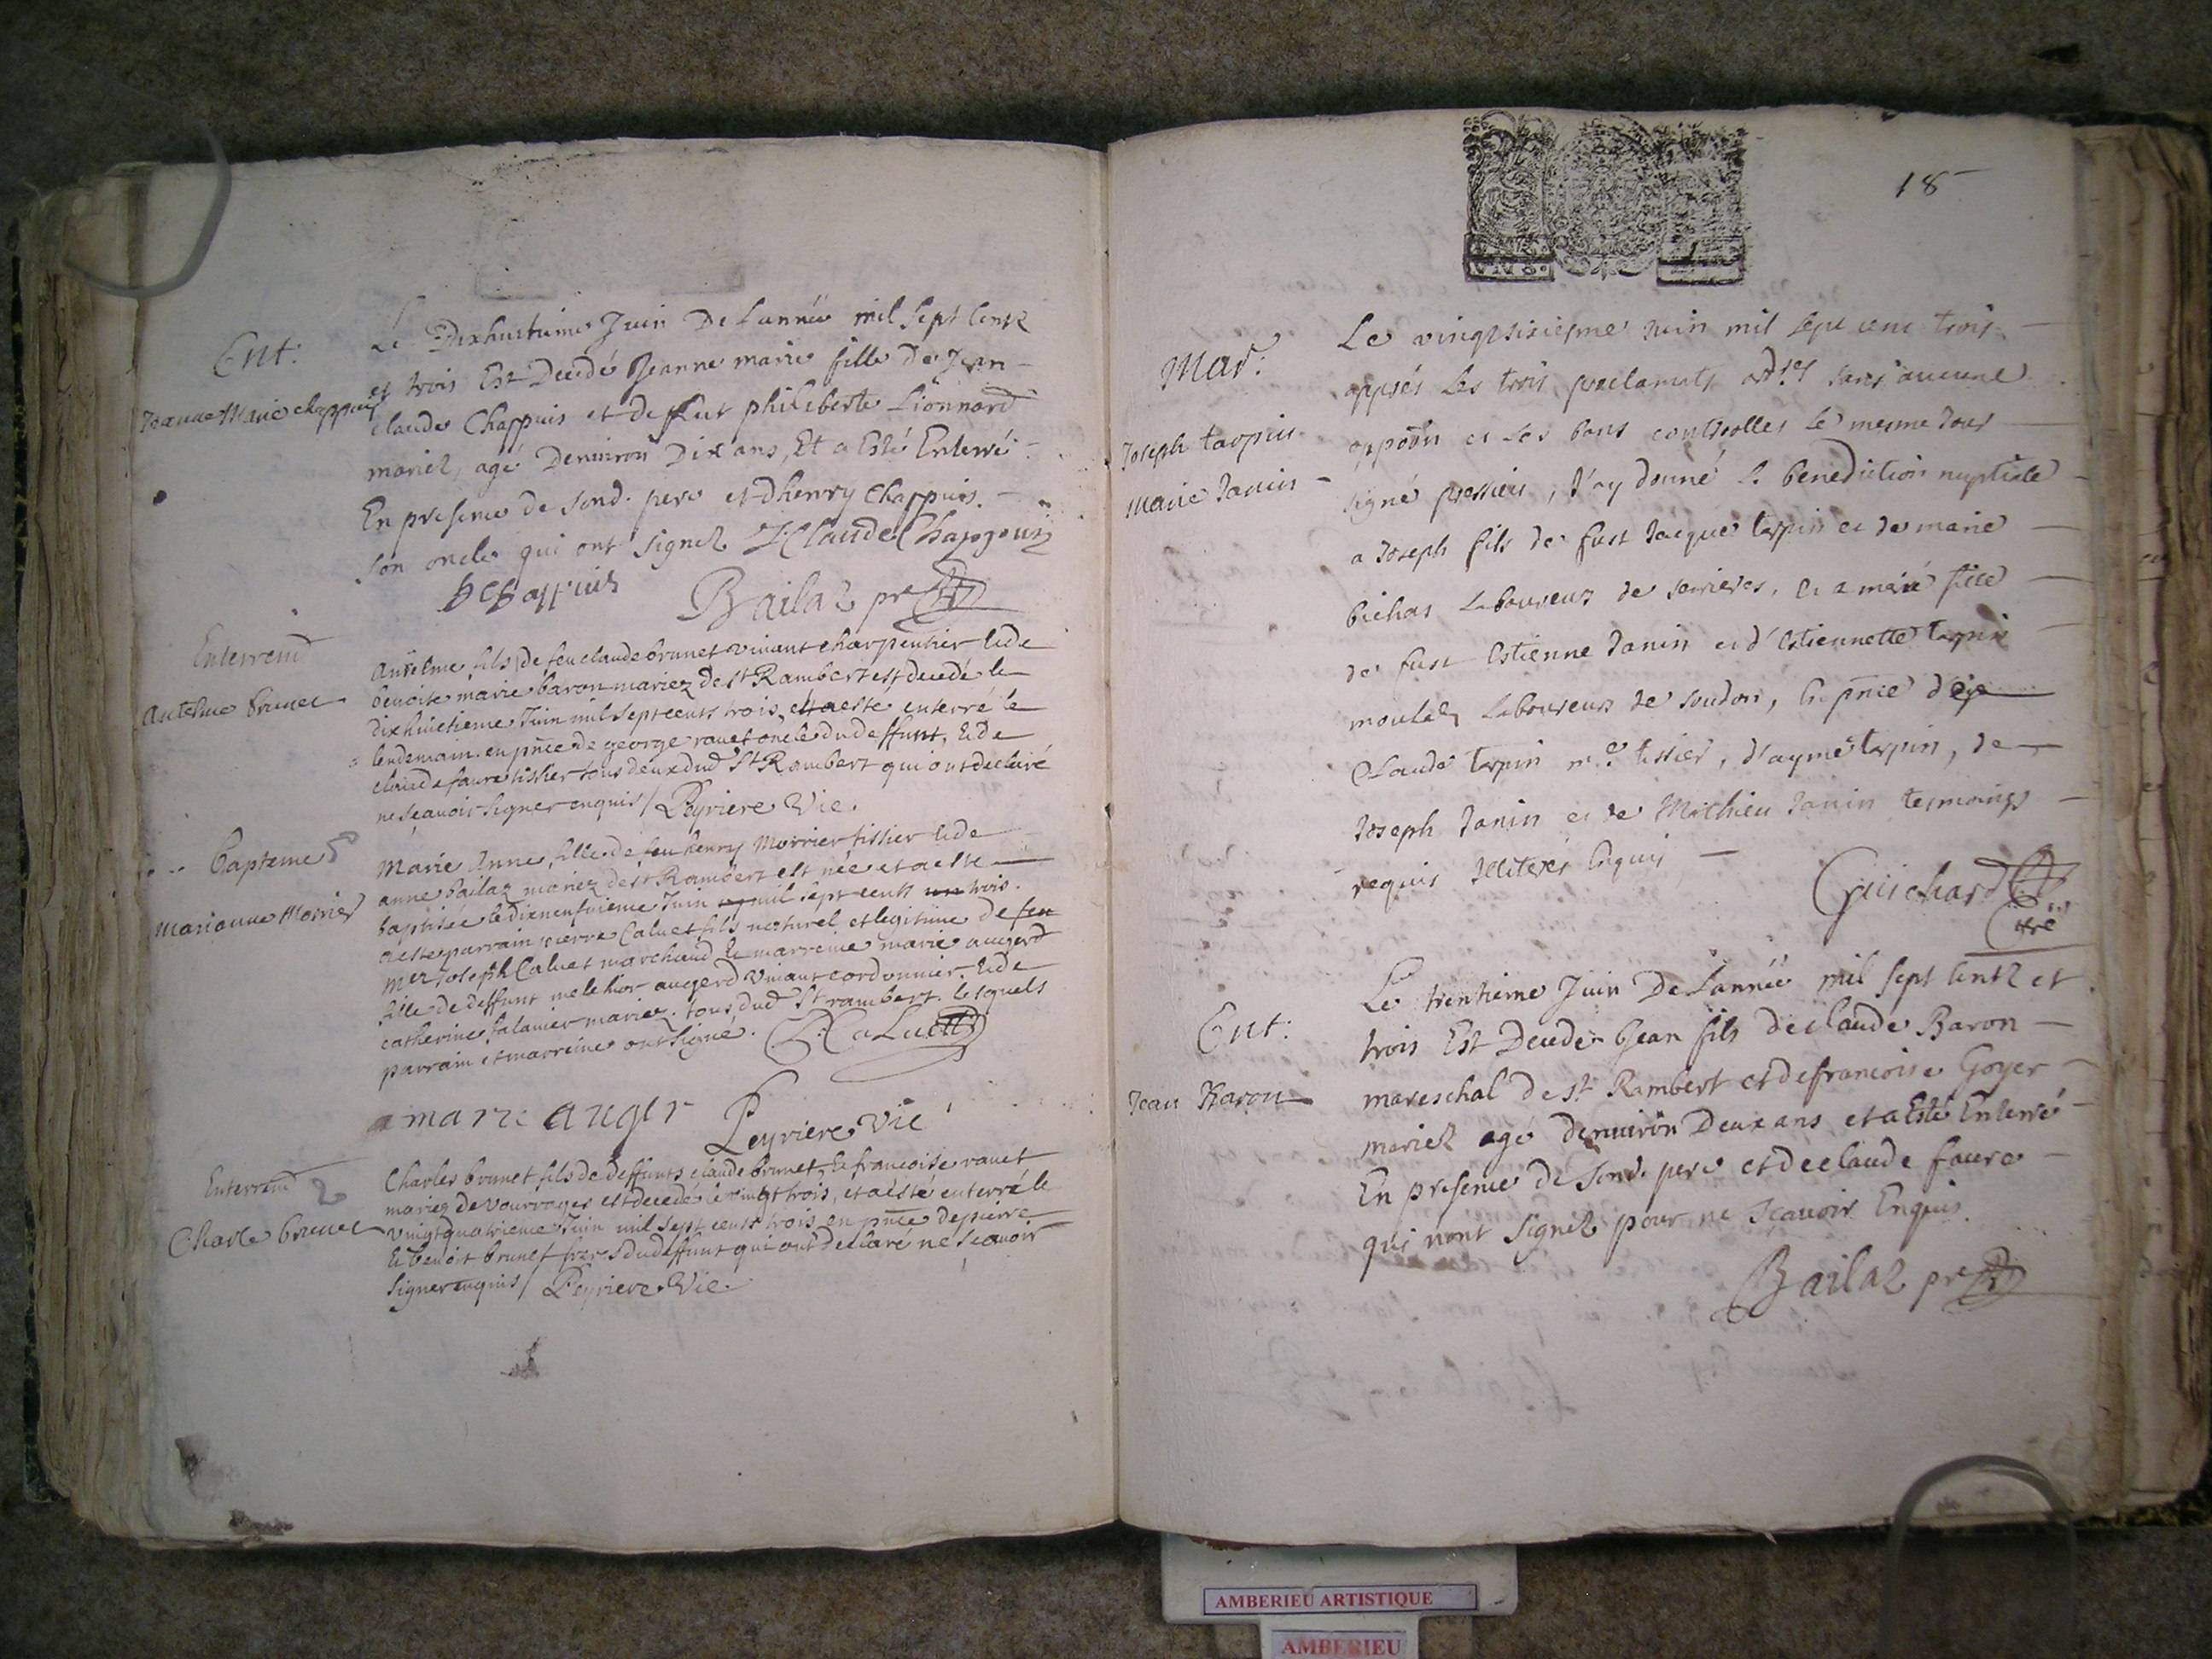 Ent:
Jeanne Marie chappuis
Le Dixhuitieme Juin De Lannéé mil Sept Centz
et trois Est Decedé Jeanne marie fille de Jean
claude Chappuis et deffeut philiberte Lionnard
mariez, agé Denviron Dix ans, Et a Esté Enterré
En presence de Sond. pere et dhenry Chappuis.
Son oncle qui ont Signez J Claude Chappuis
h Chappuis Bailaz pre
Enterremt
Antelme brunet
Antelme fils de feu claude brunet vivant charpentier & de
benoite marie baron mariez de St Rambert est decedé le
dixhuictieme Juin mil sept cents trois, et a esté enterré le
lendemain en pnce de george ravet oncle du deffunt, & de
claude faure tissier tous deux dud St Rambert qui ont declaré
ne sçavoir signer enquis / Peyriere Vic.
Bapteme
Marianne Morrier
Marie Anne, fille de feu henry Morrier tissier & de
anne bailaz mariez de St Rambert est née et a esté
baptisée le dixneufvieme Juin mil sept cents trois.
a esté parrain pierre Caluet fils naturel et legitime de feu
mre Joseph Caluet marchand & marreine marie augerd
fille de deffunt melchior augerd vivant cordonnier & de
catherine falavier mariez. tous dud St rambert. lesquels
parrain et marreine ont signé. P: Caluet
marie auger Peyriere Vic
Enterremt
Charle brunet
Charles brunet fils de deffunts claude brunet, & francoise ravet
mariez de vourvages est decedé le vingt trois, et a esté enterré le
vingtquatrieme Juin mil sept cents trois en pnce de pierre
& benoit brunet freres du deffunt qui ont declaré ne sçavoir
signer enquis / Peyriere Vic.
18
Mar:
Joseph tarpin
Marie Janin
Le vingtsixiesme Juin mil sept cent trois
apprés Les trois proclamats ordres sans aucune
oppoon et Les bans controlles le mesme Jour
signé pressieu, J'ay donné la benediction nuptiale
a Joseph fils de fust Jacque tarpin et de marie
bichat Laboureur de serrieres, et a marie fille
de fust Estienne Janin et d'Estiennette tarpin
moulez Laboureur de soudon, En pnce de
Claude tarpin me tissier, d'ayme tarpin, de
Joseph Janin et de Mathieu Janin tesmoings
requis Illiterés Enquis
Guichard
Ent:
Jean Baron
Le trentieme Juin De Lannéé mil Sept Centz et
trois Est Decedé Jean fils de claude Baron
mareschal de St Rambert et de francoise Goyer
mariez agé denviron Deux ans et a Esté Enterré
En presence de Sond. pere et de claude faure
qui nont Signez pour ne Sçavoir Enquis.
Bailaz pre
AMBERIEU ARTISTIQUE
AMBERIEU